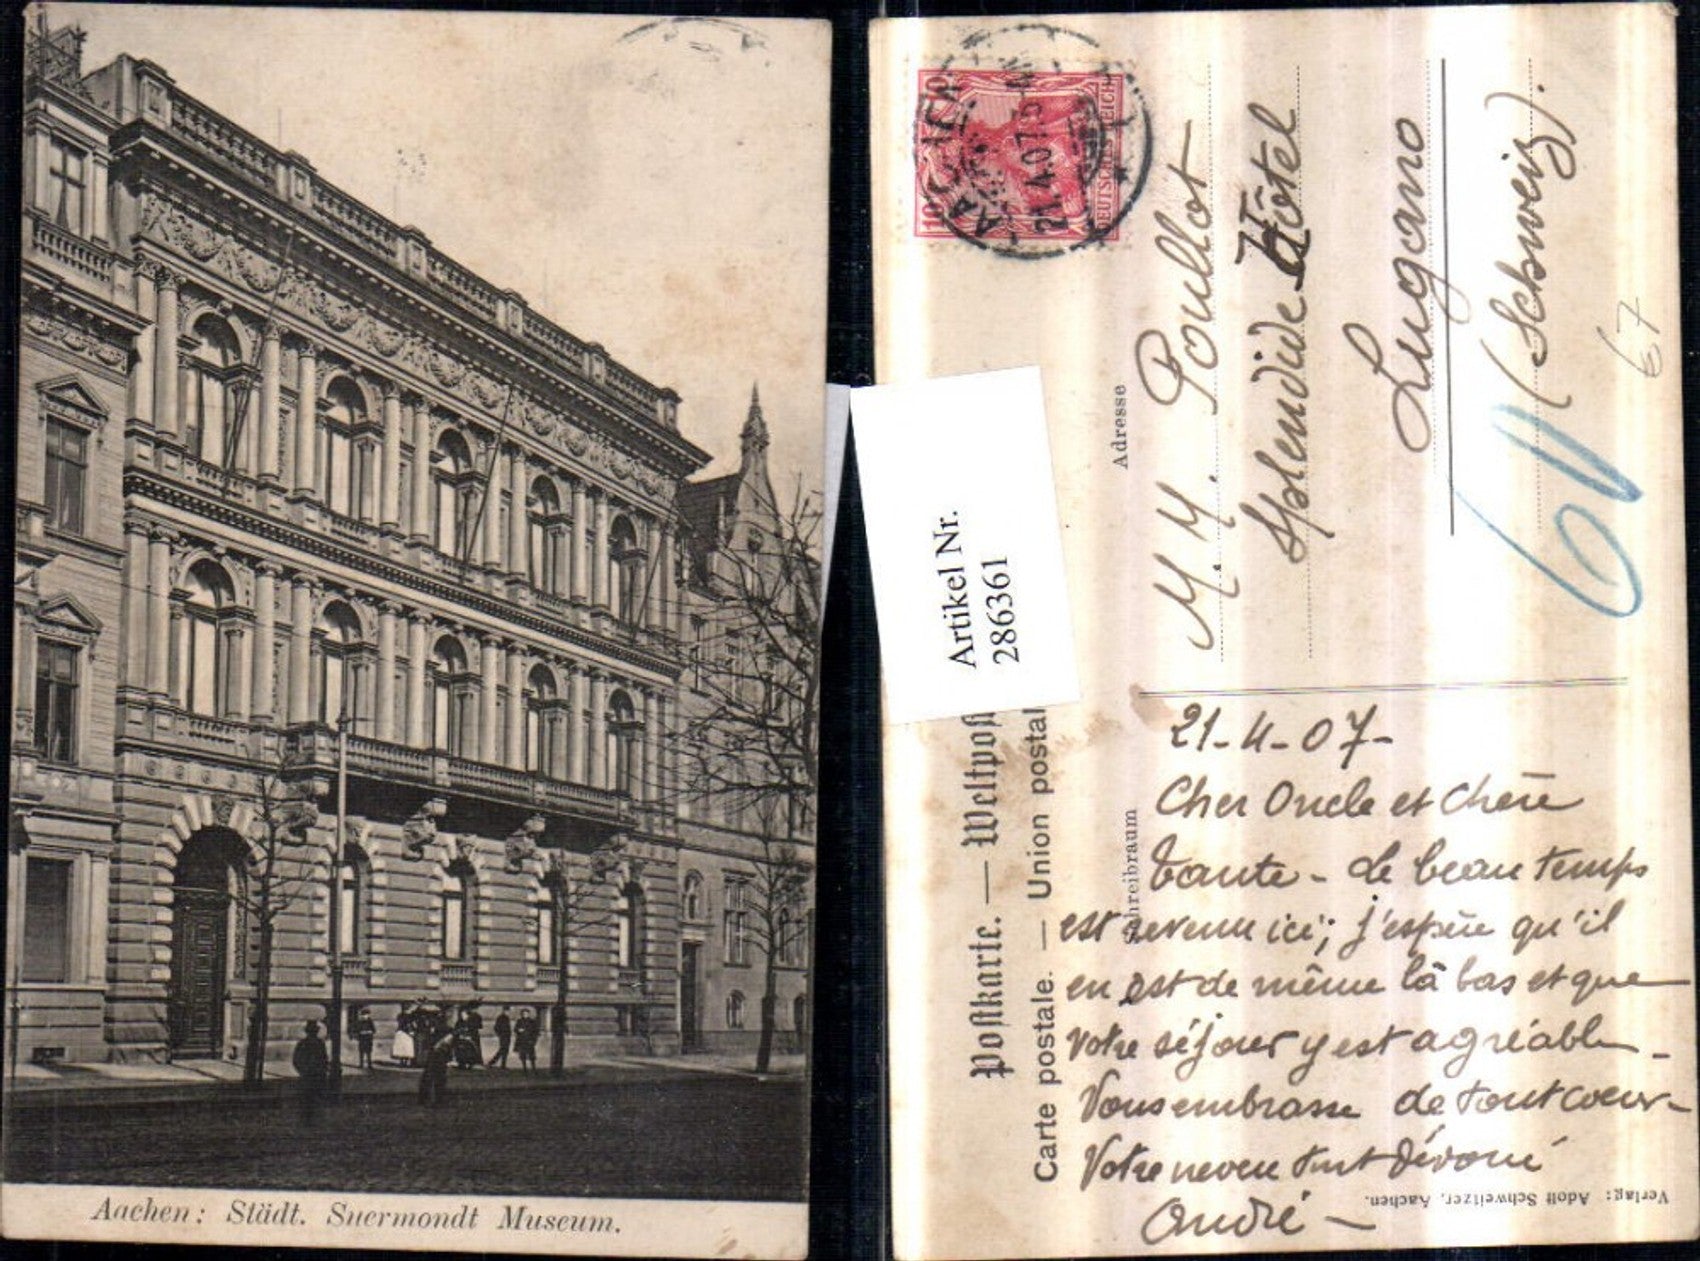 Aachen: Städt. Suermondt Museum.
10
DEUTSCHES REICH
AACHEN
21.4.07.5-
Artikel Nr.
286361
Postkarte. — Weltpost
Carte postale. — Union postal
Adresse
M. M. Poullot
Splendide Hôtel
Lugano
(Schweiz).
67
Schreibraum
21-4-07-
Cher Oncle et Chère
tante - Le beau temps
est revenu ici; j'espère qu'il
en est de même là bas et que
votre séjour y est agréable -
Vous embrasse de tout coeur -
Votre neveu tout dévoué
André -
Verlag: Adolf Schweitzer, Aachen.